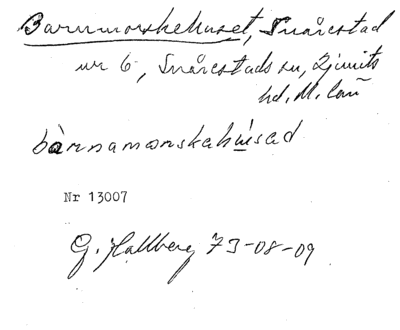 Barnmorskehuset, Snårestad
nr 6, Snårestads sn, Ljunits
hd. M. län
bànnamornskahúsad
Nr 13007
G. Hallberg 73-08-09